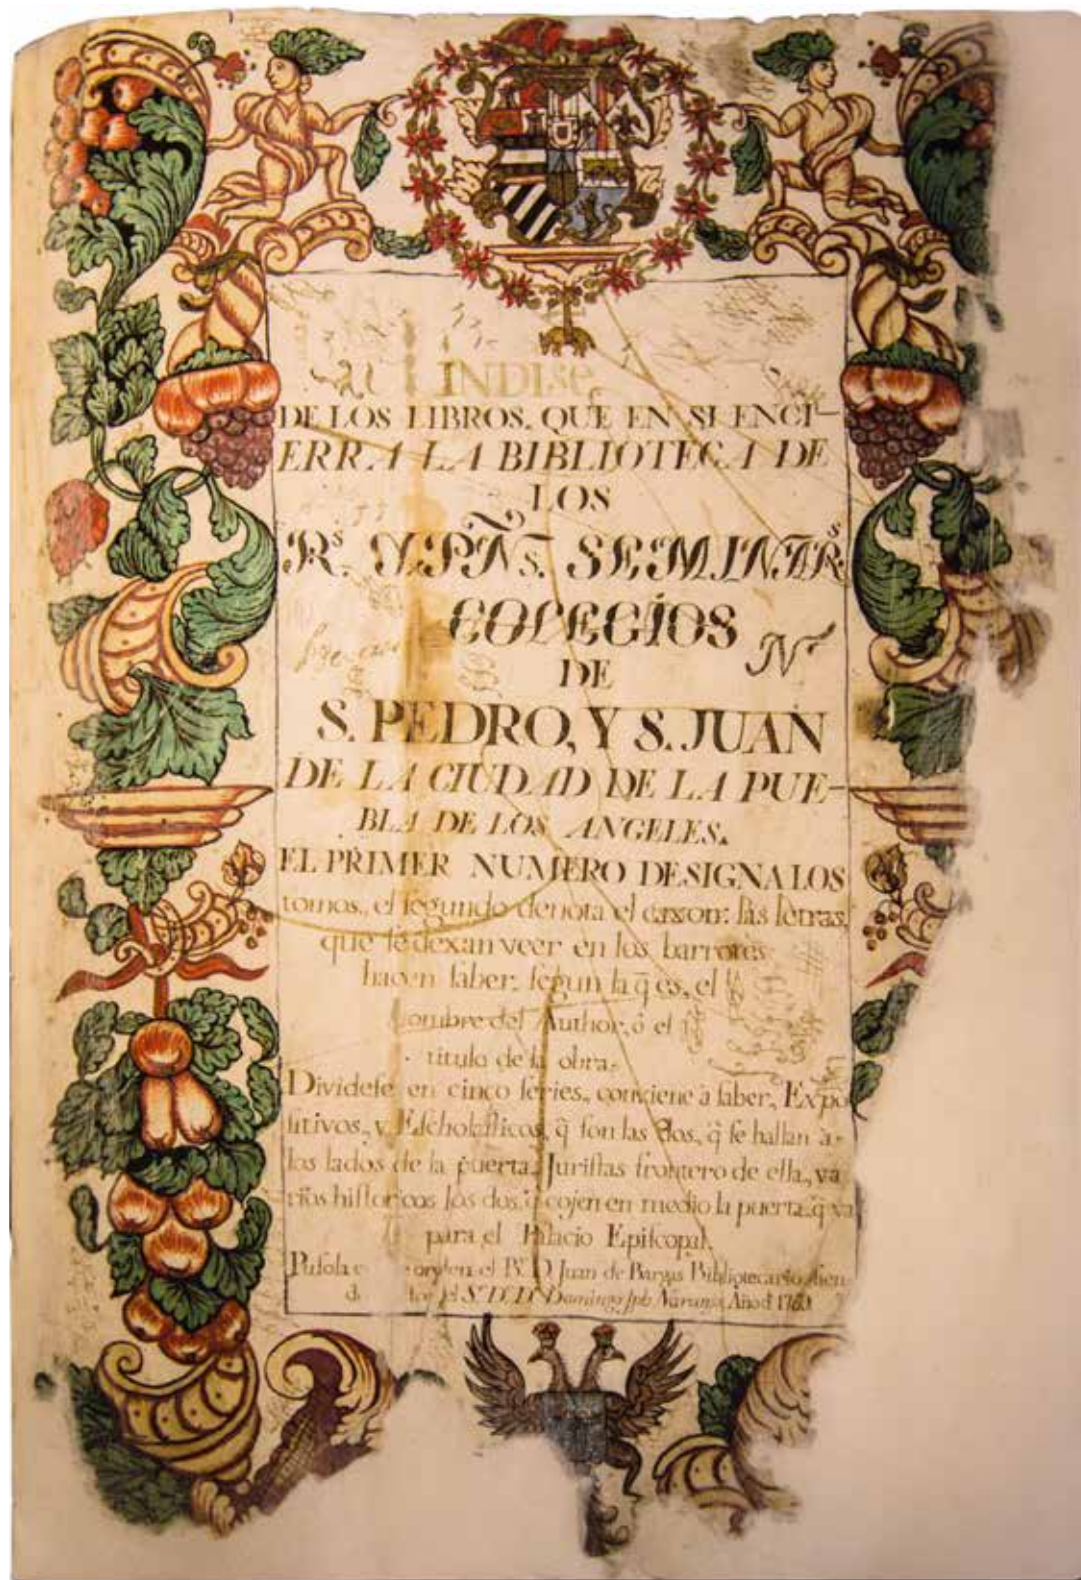 INDISe
DE LOS LIBROS, QUE EN SI ENCI-
ERRA LA BIBLIOTECA DE
LOS
Rs. Y PÑs. SEMINARs
COLEGIOS
DE
S. PEDRO, Y S. JUAN
DE LA CIUDAD DE LA PUE-
BLA DE LOS ANGELES.
EL PRIMER NUMERO DESIGNA LOS
tomos, el ſegundo denota el caxon: las letras,
que ſe dexan veer en los barrotes
hacen ſaber, ſegun la q̄ es, el
ombre del Author, ô el
titulo de la obra.
Divideſe en cinco ſeries, conviene à ſaber, Expo
ſitivos, y Eſcholaſticos, q̄ ſon las dos, q̄ ſe hallan à
los lados de la puerta, Juriſtas frontero de ella, va
rios hiſtoricos los dos, q̄ cojen en medio la puerta, q̄ va
para el Palacio Epiſcopal.
Puſola en el Br. D. Juan de Bargas Bibliotecario, ſien
el Sr. Dr. D. Domingo Jph Naranjo, Año d